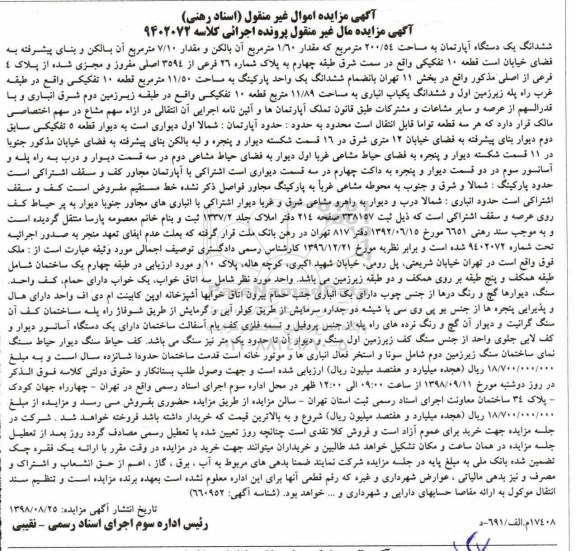 آگهی مزایده اموال غیر منقول (اسناد رهنی)
آگهی مزایده مال غیر منقول پرونده اجرائی کلاسه ۹۴۰۲۰۷۲
ششدانگ یک دستگاه آپارتمان به مساحت ۲۰۰/۵۴ مترمربع که مقدار ۱/۶۰ مترمربع آن بالکن و مقدار ۷/۱۰ مترمربع آن بالکن و بنای پیشرفته به
فضای خیابان است قطعه ۱۰ تفکیکی واقع در سمت شرق طبقه چهارم به پلاک شماره ۲۶ فرعی از ۳۵۹۴ اصلی مفروز و مجزی شده از پلاک ۴
فرعی از اصلی مذکور واقع در بخش ۱۱ تهران بانضمام ششدانگ یک واحد پارکینگ به مساحت ۱۱/۵۰ مترمربع قطعه ۱۰ تفکیکی واقع در طبقه
غرب راه پله زیرزمین اول و ششدانگ یکباب انباری به مساحت ۱۱/۸۹ مربع قطعه ۱۰ تفکیکی واقع در طبقه زیرزمین دوم شرق انباری و با
قدرالسهم از عرصه و سایر مشاعات و مشترکات طبق قانون تملک آپارتمان ها و آئین نامه اجرایی آن انتقالی در ازاء سهم مشاع در سهم اختصاصی
مالک قرار دارد که هر سه قطعه تواما قابل انتقال است محدود به حدود : حدود آپارتمان : شمالا اول دیواری است به دیوار قطعه ۵ تفکیکی سابق
دوم دیوار بنای پیشرفته به فضای خیابان ۱۲ متری شرق در ۱۶ قسمت شکسته دیوار و پنجره و لبه بالکن بنای پیشرفته به فضای خیابان مذکور جنوبا
در ۱۱ قسمت شکسته دیوار و پنجره به فضای حیاط مشاعی غربا اول دیوار به فضای حیاط مشاعی دوم در سه قسمت دیوار و درب به راه پله و
آسانسور سوم در دو قسمت دیوار و پنجره به داکت چهارم در سه قسمت دیواری است اشتراکی با آپارتمان مجاور کف و سقف اشتراکی است
حدود پارکینگ : شمالا و شرق و جنوب به محوطه مشاعی غربا به پارکینگ مجاور فواصل ذکر نشده خط مستقیم مفروض است کف و سقف
اشتراکی است حدود انباری : شمالا درب و دیوار به راهرو مشاعی شرق و غربا دیوار اشتراکی با انباری های مجاور جنوبا دیوار به پر حیاط کف
روی عرصه و سقف اشتراکی است که ذیل ثبت ۲۳۸۱۵۷ صفحه ۲۱۴ دفتر املاک جلد ۱۳۳۷/۲ ثبت و بنام خانم معصومه پارسا منتقل گردیده است
و به موجب سند رهنی ۶۶۵۱ مورخ ۱۳۹۲/۰۶/۱۵ دفتر ۸۱۷ تهران در رهن بانک ملت قرار گرفته که بعلت عدم ایفای تعهد منجر به صدور اجرائیه
تحت شماره ۹۴۰۲۰۷۲ شده است و برابر نظریه مورخ ۱۳۹۶/۱۲/۲۱ کارشناس رسمی دادگستری توصیف اجمالی مورد وثیقه عبارت است از : ملک
فوق واقع است در تهران خیابان شریعتی، پل رومی، خیابان شهید اکبری، کوچه هاله، پلاک ۱۰ و مورد ارزیابی در طبقه چهارم یک ساختمان شامل
طبقه همکف و پنج طبقه بر روی همکف و دو طبقه زیرزمین می باشد. واحد مورد نظر شامل سه اتاق خواب، یک خواب دارای حمام، کف واحد،
سنگ، دیوارها گچ و رنگ درها از جنس چوب دارای یک انباری جنب حمام بیرون اتاق خوابها آشپزخانه اوپن کابینت ام دی اف واحد دارای هال
و پذیرایی پنجره ها از جنس یو پی وی سی با شیشه دو جداره سرمایش از طریق کولر آبی و گرمایش از طریق شوفاژ راه پله ساختمان کف آن
سنگ گرانیت و دیوار آن گچ و رنگ نرده های راه پله از جنس پروفیل و تسمه فلزی کف بام آسفالت ساختمان دارای یک دستگاه آسانسور دیوار و
کف لابی جلوی واحد از جنس سنگ کف زیرزمین اول سنگ و دیوارها تا حدود یک متر نیز سنگ می باشد. کف حیاط سنگ دیوار حیاط سنگ
نمای ساختمان سنگ زیرزمین دوم شامل سونا و استخر فعال انباری ها و موتور خانه است قدمت ساختمان حدودا شانزده سال است و به مبلغ
۱۸/۷۰۰/۰۰۰/۰۰۰ ریال (هجده میلیارد و هفتصد میلیون ریال) ارزیابی شده است و جهت وصول طلب بستانکار و حقوق دولتی کلاسه فوق الذکر
در روز دوشنبه مورخ ۱۳۹۸/۰۹/۱۱ از ساعت ۰۹:۰۰ الی ۱۲:۰۰ ظهر در محل اداره سوم اجرای اسناد رسمی واقع در تهران - چهارراه جهان کودک
- پلاک ۳۴ ساختمان معاونت اجرای اسناد رسمی ثبت استان تهران - سالن مزایده از طریق مزایده حضوری بفروش می رسد و مزایده از مبلغ
۱۸/۷۰۰/۰۰۰/۰۰۰ ریال (هجده میلیارد و هفتصد میلیون ریال) شروع و به بالاترین قیمت که خریدار داشته باشد فروخته خواهد شد . شرکت در
جلسه مزایده جهت خرید برای عموم آزاد است و فروش کلا نقدی است چنانچه روز تعیین شده با تعطیل رسمی مصادف گردد روز بعد از تعطیل
جلسه مزایده در همان ساعت و مکان تشکیل خواهد شد طالبین و خریداران میتوانند جهت خرید در مزایده در وقت مقرر با ارائه یک فقره چک
تضمین شده بانک ملی به مبلغ پایه در جلسه مزایده شرکت نمایند ضمنا بدهی های مربوط به آب ، برق ، گاز ، اعم از حق انشعاب و اشتراک و
مصرف و نیز بدهی مالیاتی ، عوارض شهرداری و غیره که رقم قطعی آنها برای این اداره معلوم نشده است بعهده برنده مزایده است و تنظیم سند
انتقال موکول به ارائه مفاصا حسابهای دارایی و شهرداری و ... خواهد بود. (شناسه آگهی: ۶۶۰۹۵۲)
تاریخ انتشار آگهی مزایده: ۱۳۹۸/۰۸/۲۵
۱۷۴۰۸م/الف/۶۹۱-د
رئیس اداره سوم اجرای اسناد رسمی - نقیبی